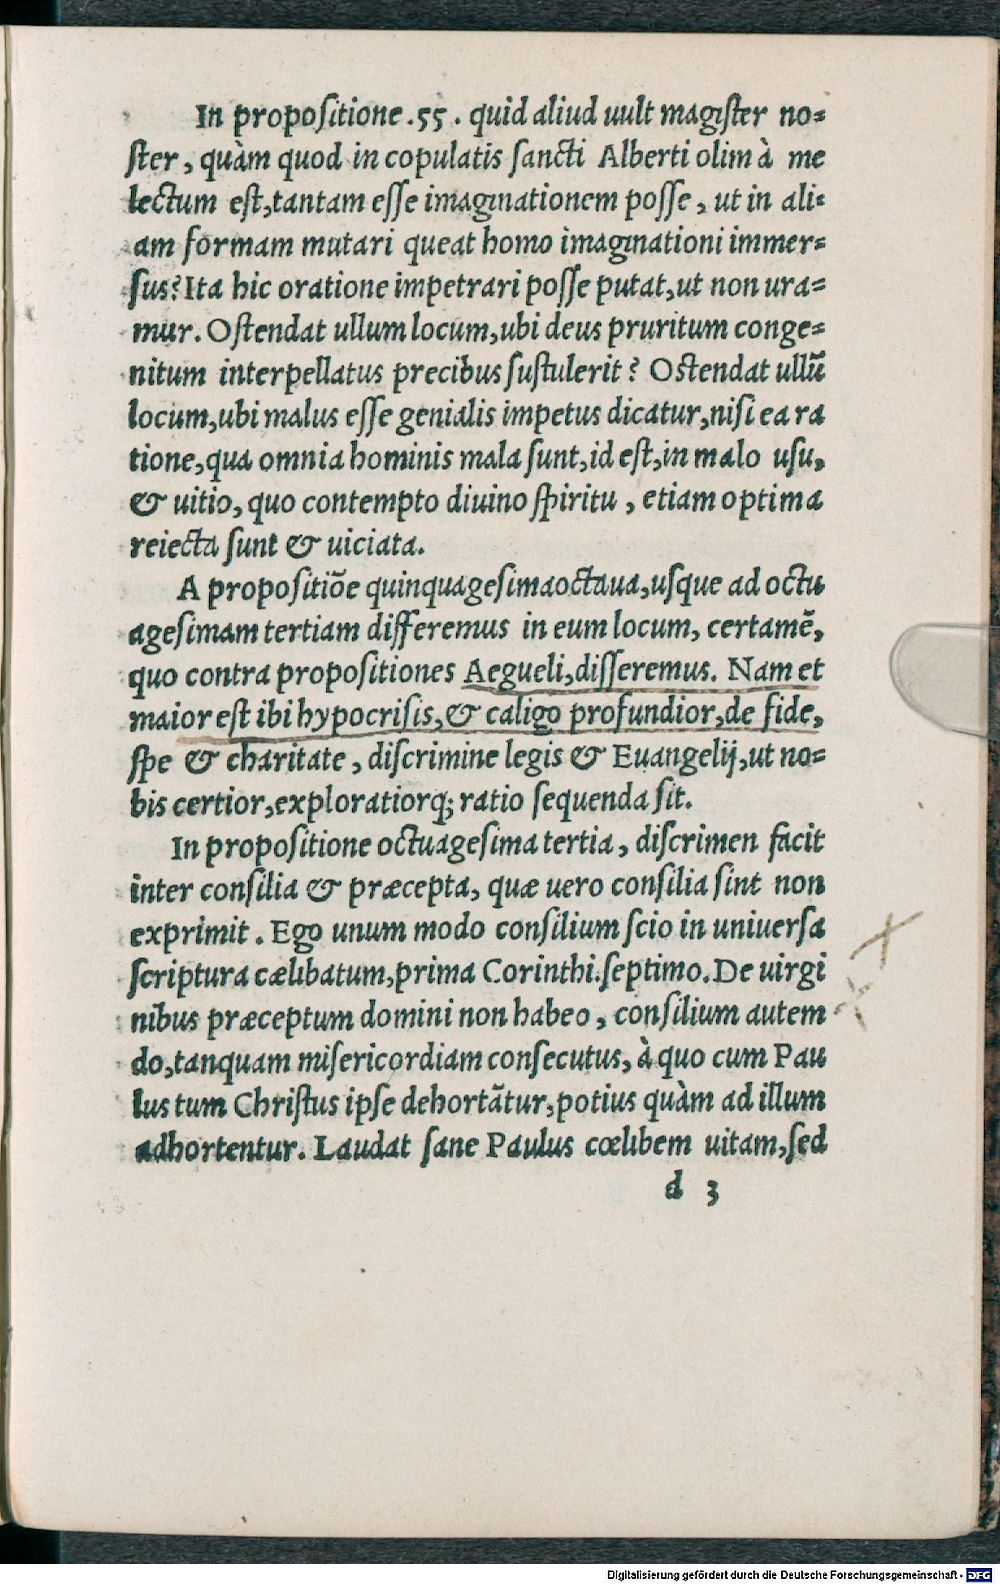 In propositione .55. quid aliud uult magister no=
ster, quàm quod in copulatis sancti Alberti olim à me
lectum est,tantam esse imaginationem posse, ut in ali=
am formam mutari queat homo imaginationi immer=
sus? Ita hic oratione impetrari posse putat,ut non ura=
mur. Ostendat ullum locum,ubi deus pruritum conge=
nitum interpellatus precibus sustulerit? Ostendat ullũ
locum,ubi malus esse genialis impetus dicatur,nisi ea ra
tione,qua omnia hominis mala sunt,id est,in malo usu,
& uitio, quo contempto diuino spiritu, etiam optima
reiecta sunt & uiciata.
A propositiõe quinquagesimaoctaua,usque ad octu
agesimam tertiam differemus in eum locum, certamẽ,
quo contra propositiones Aegueli,disseremus. Nam et
maior est ibi hypocrisis,& caligo profundior,de fide,
spe & charitate, discrimine legis & Euangelij,ut no=
bis certior,exploratiorq; ratio sequenda sit.
In propositione octuagesima tertia, discrimen facit
inter consilia & præcepta, quæ uero consilia sint non
exprimit. Ego unum modo consilium scio in uniuersa
scriptura cælibatum,prima Corinthi.septimo. De uirgi
nibus præceptum domini non habeo, consilium autem
do,tanquam misericordiam consecutus, à quo cum Pau
lus tum Christus ipse dehortãtur,potius quàm ad illum
adhortentur. Laudat sane Paulus cœlibem uitam,sed
d 3
Digitalisierung gefördert durch die Deutsche Forschungsgemeinschaft - DFG